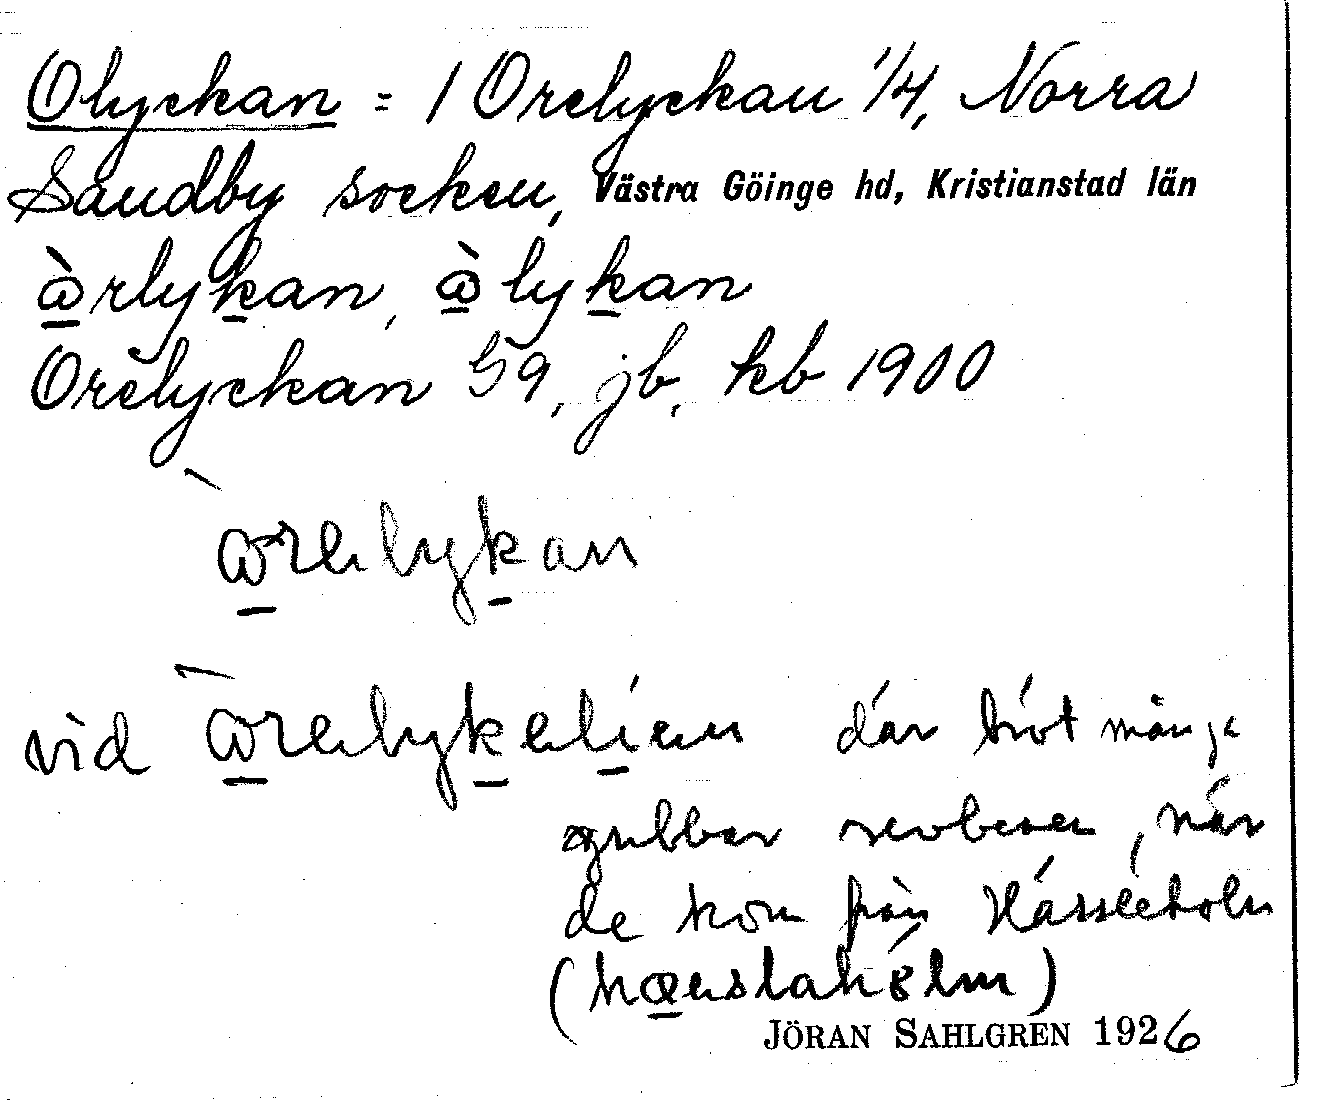 Olyckan = 1 Orelyckan 1/4, Norra
Sandby socken, Västra Göinge hd, Kristianstad län
ὰrlykan, ὰlykan
Orelyckan 59, jb, kb 1900
àrelykan
vid àrelykeliem där blivit många
gubbar, när
de kom från Hässleholm
(hæuslahólm)
JÖRAN SAHLGREN 1926